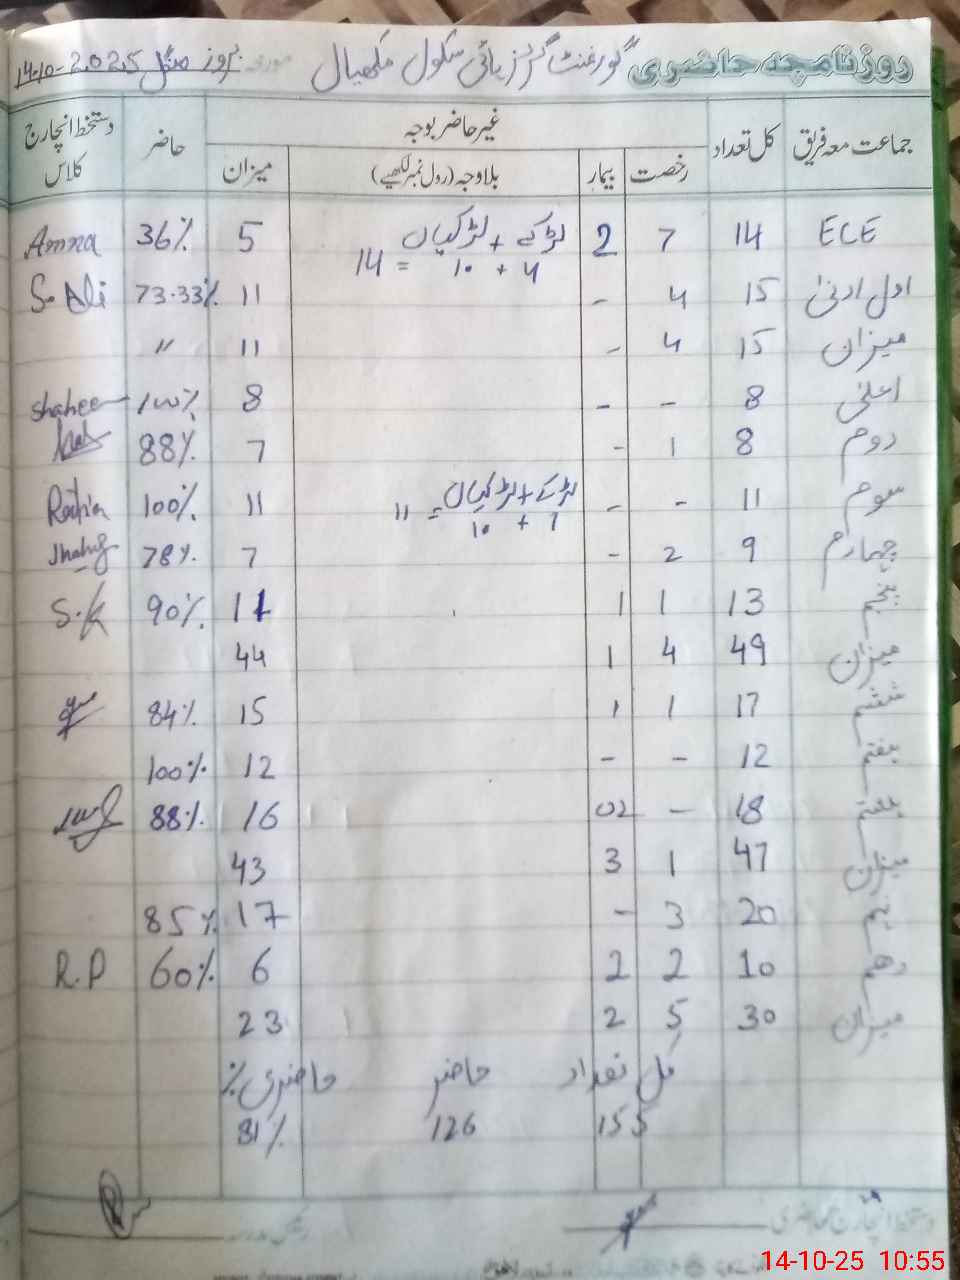 روزنامچہ حاضری گورنمنٹ گرلز ہائی سکول مکھیال مورخہ بروز منگل 14-10-2025
جماعت معہ فریق کل تعداد غیر حاضر بوجہ حاضر دستخط انچارج کلاس
رخصت بیمار بلاوجہ (رول نمبر لکھیے) میزان
ECE 14 7 2 لڑکے + لڑکیاں 5 36% Amna
4 + 10 = 14
اول ادنیٰ 15 4 - 11 73.33% S. Ali
میزان 15 4 - 11 "
اعلیٰ 8 - - 8 100% Shaheen
دوم 8 1 - 7 88%
سوم 11 - - لڑکے + لڑکیاں 11 100% Razia
1 + 10 = 11
چہارم 9 2 - 7 78%
پنجم 13 1 1 11 90% S.K
میزان 49 4 1 44
ششم 17 1 1 15 84%
ہفتم 12 - - 12 100%
ہشتم 18 - 02 16 88%
میزان 47 1 3 43
نہم 20 3 - 17 85%
دہم 10 2 2 6 60% R.P
میزان 30 5 2 23
کل تعداد حاضر حاضری %
155 126 81%
دستخط انچارج حاضری رئیس مدرسہ
14-10-25 10:55